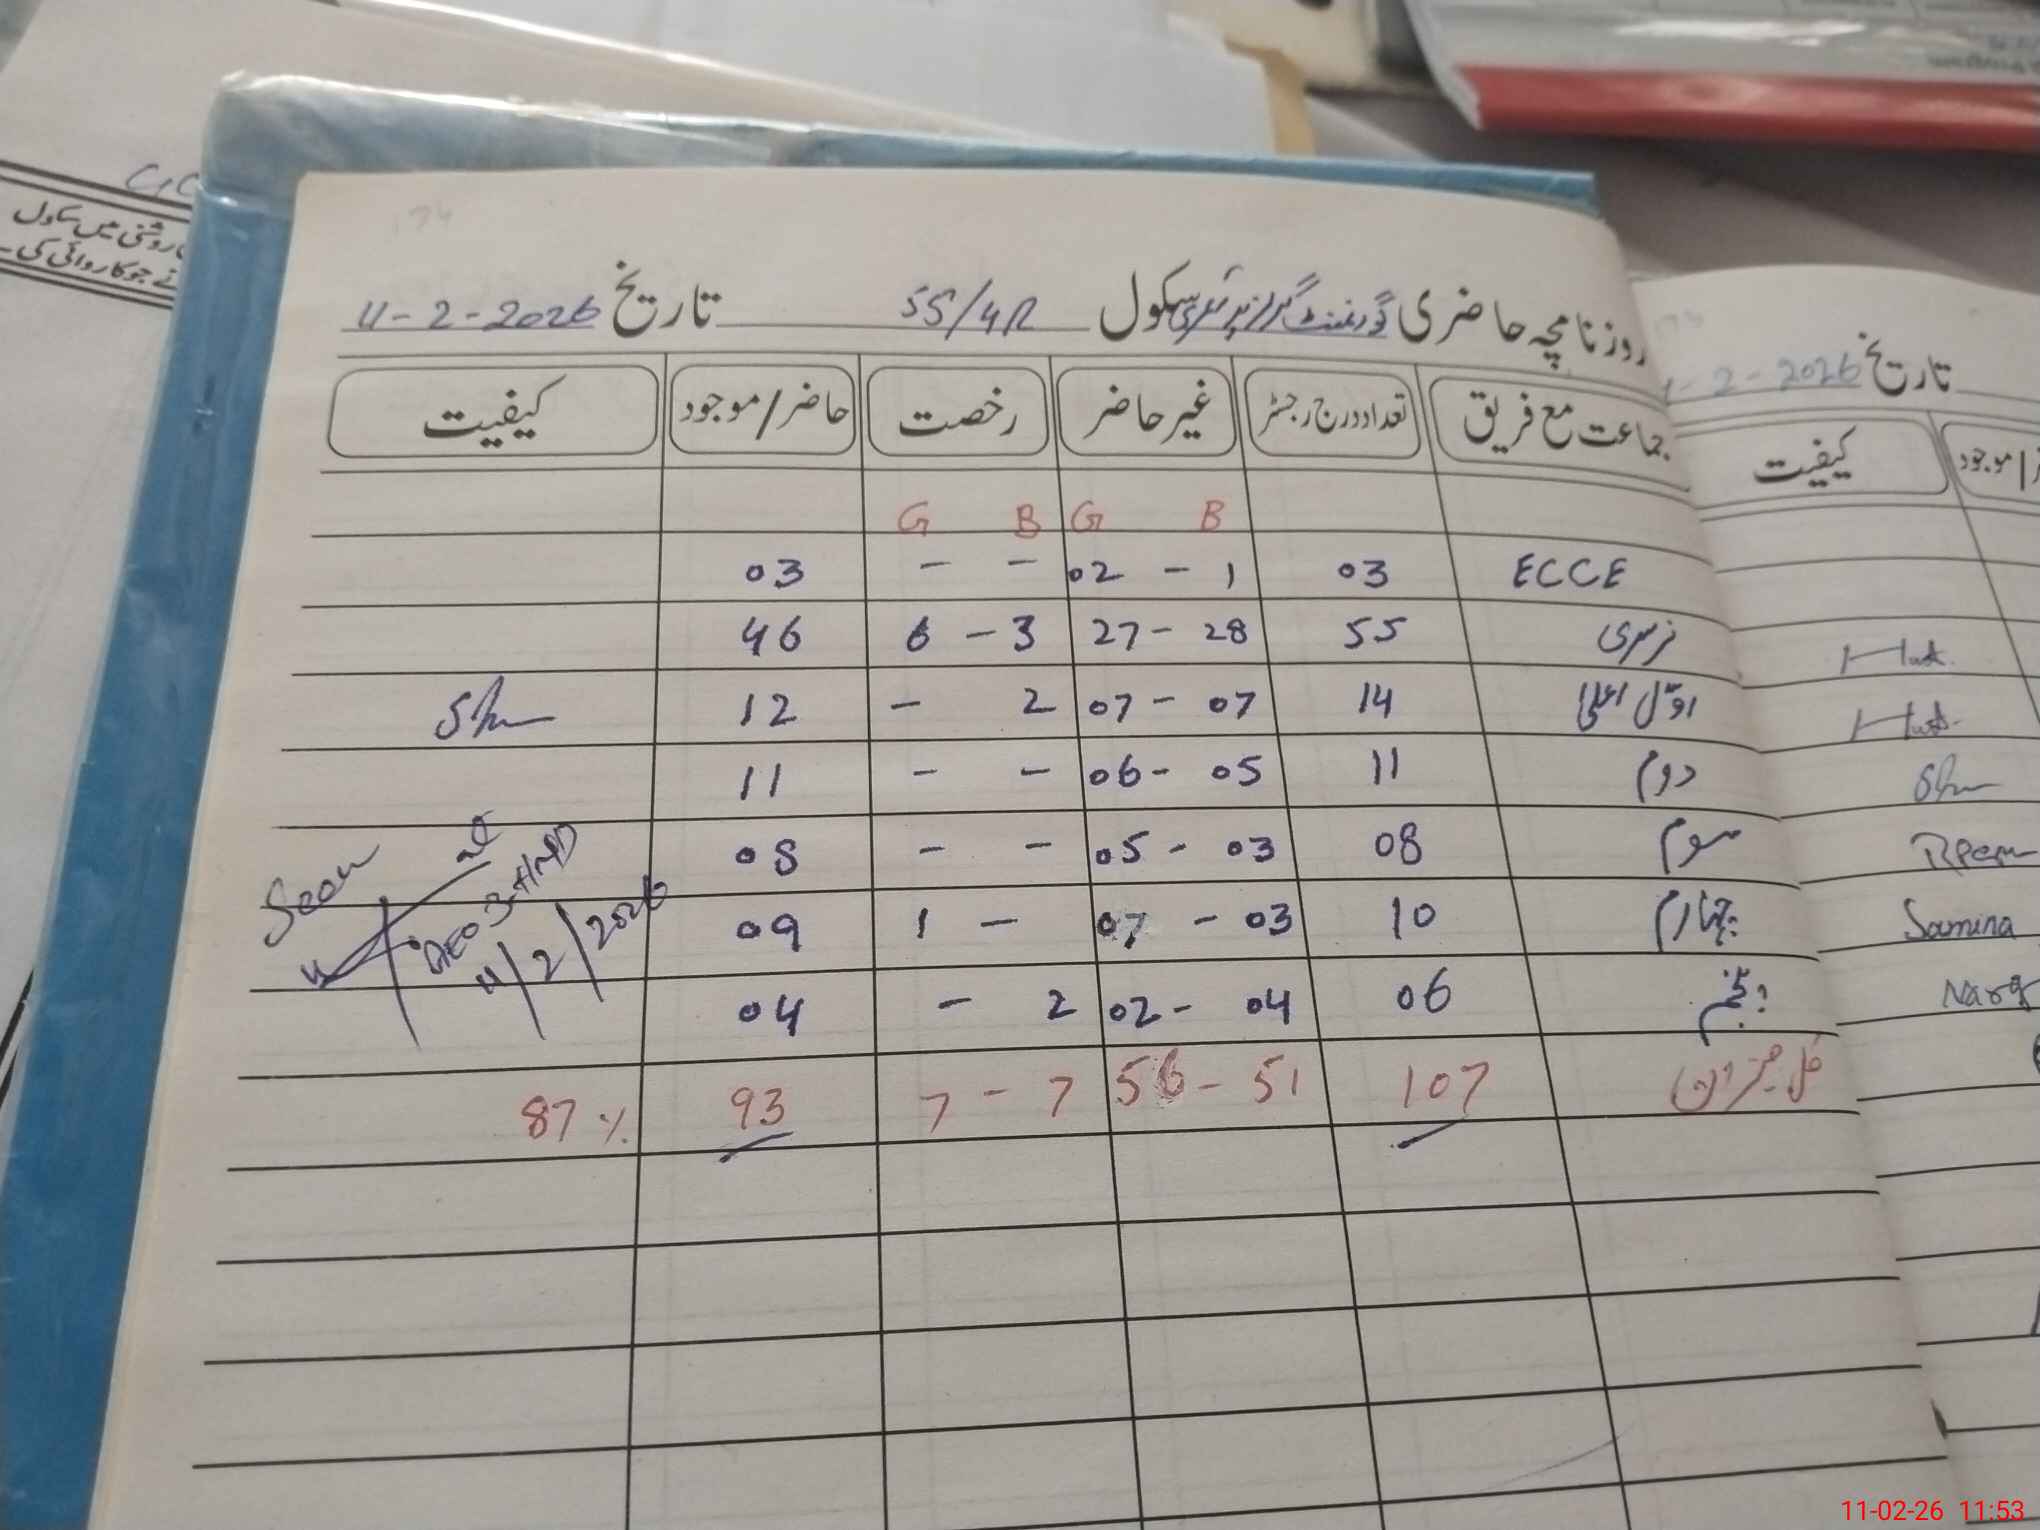 روزنامچہ حاضری گورنمنٹ گرلز پرائمری سکول 55/4R تاریخ 11-2-2026
جماعت مع فریق تعداد درج رجسٹر غیر حاضر رخصت حاضر/موجود کیفیت
G B G B
ECCE 03 02 - 1 - - 03
نرسری 55 27 - 28 6 - 3 46
اوّل اعلیٰ 14 07 - 07 - 2 12
دوم 11 06 - 05 - - 11
سوم 08 05 - 03 - - 08
چہارم 10 07 - 03 1 - 09
پنجم 06 02 - 04 - 2 04
کل میزان 107 56 - 51 7 - 7 93 87 %
Seen
AEO
11/2/2026
تاریخ -2-2026
کیفیت موجود
Samina
روشنی میں سکول
نے جو کاروائی کی۔
11-02-26 11:53